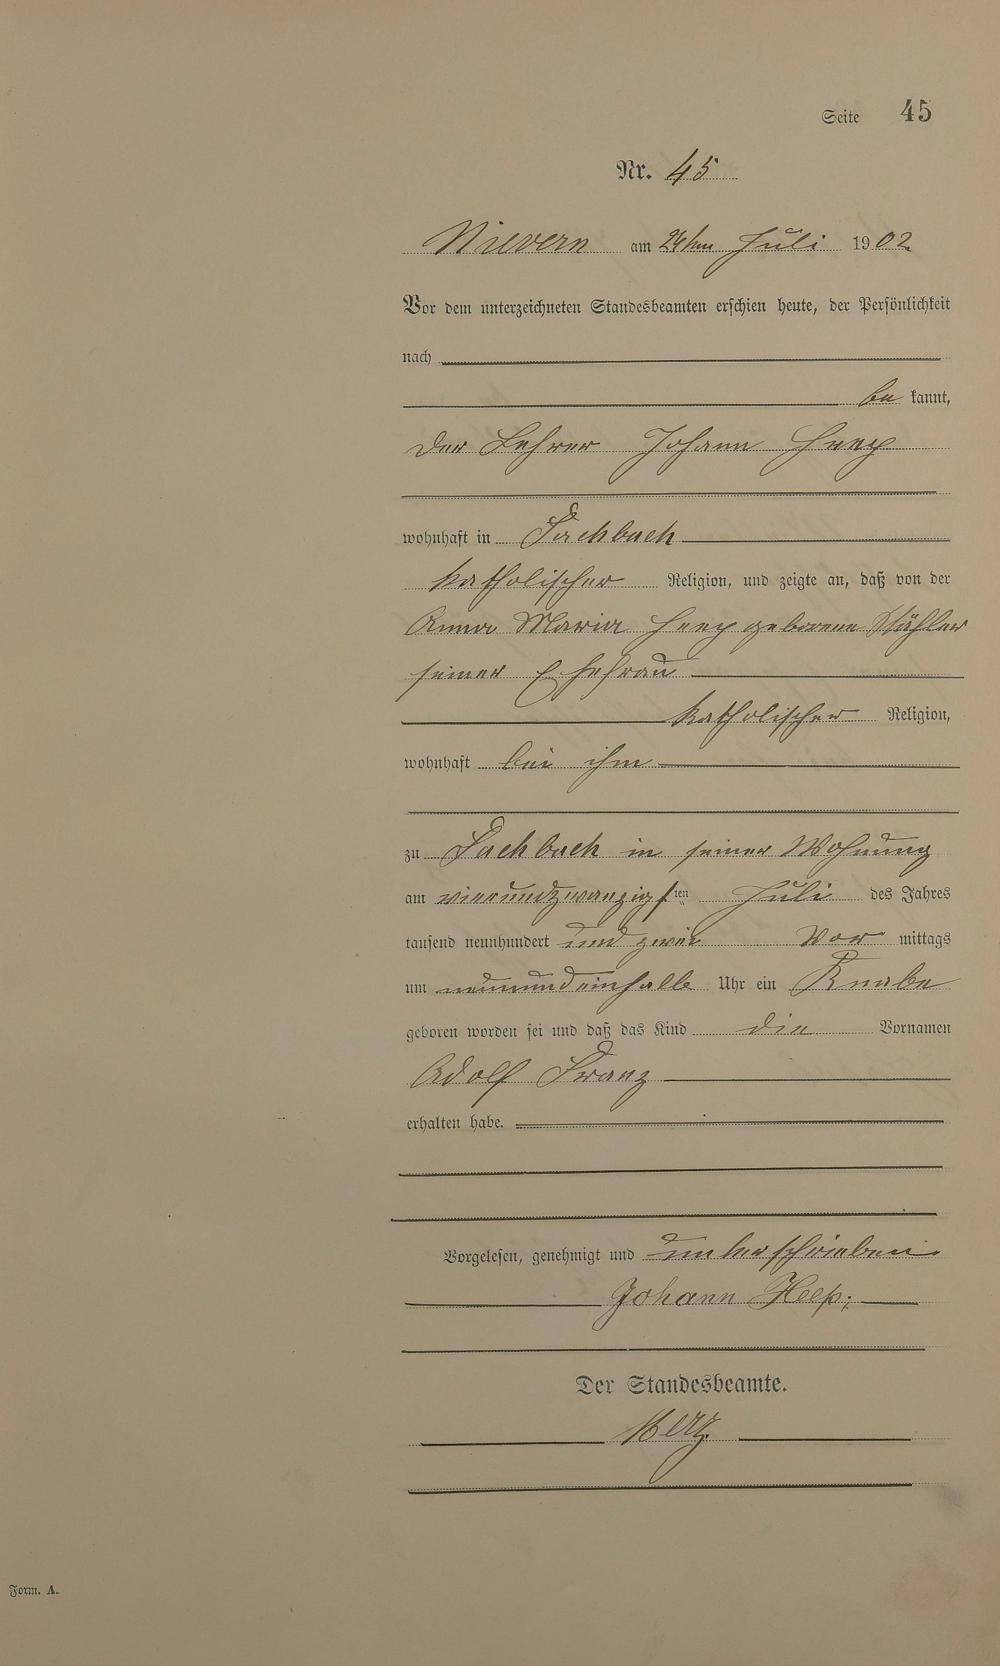 Seite 45
Nr. 45
Nievern am 24ten Juli 1902
Vor dem unterzeichneten Standesbeamten erschien heute, der Persönlichkeit
nach
be kannt,
der Lehrer Johann Heep
wohnhaft in Fachbach
katholischer Religion, und zeigte an, daß von der
Anna Maria Heep geborene Stähler
seiner Ehefrau
katholischer Religion,
wohnhaft bei ihm
zu Fachbach in seiner Wohnung
am vierundzwanzigsten Juli des Jahres
tausend neunhundert und zwei Vor mittags
um neunundeinhalb Uhr ein Knabe
geboren worden sei und daß das Kind die Vornamen
Adolf Franz
erhalten habe.
Vorgelesen, genehmigt und unterschrieben.
Johann Heep;
Der Standesbeamte.
Form. A.